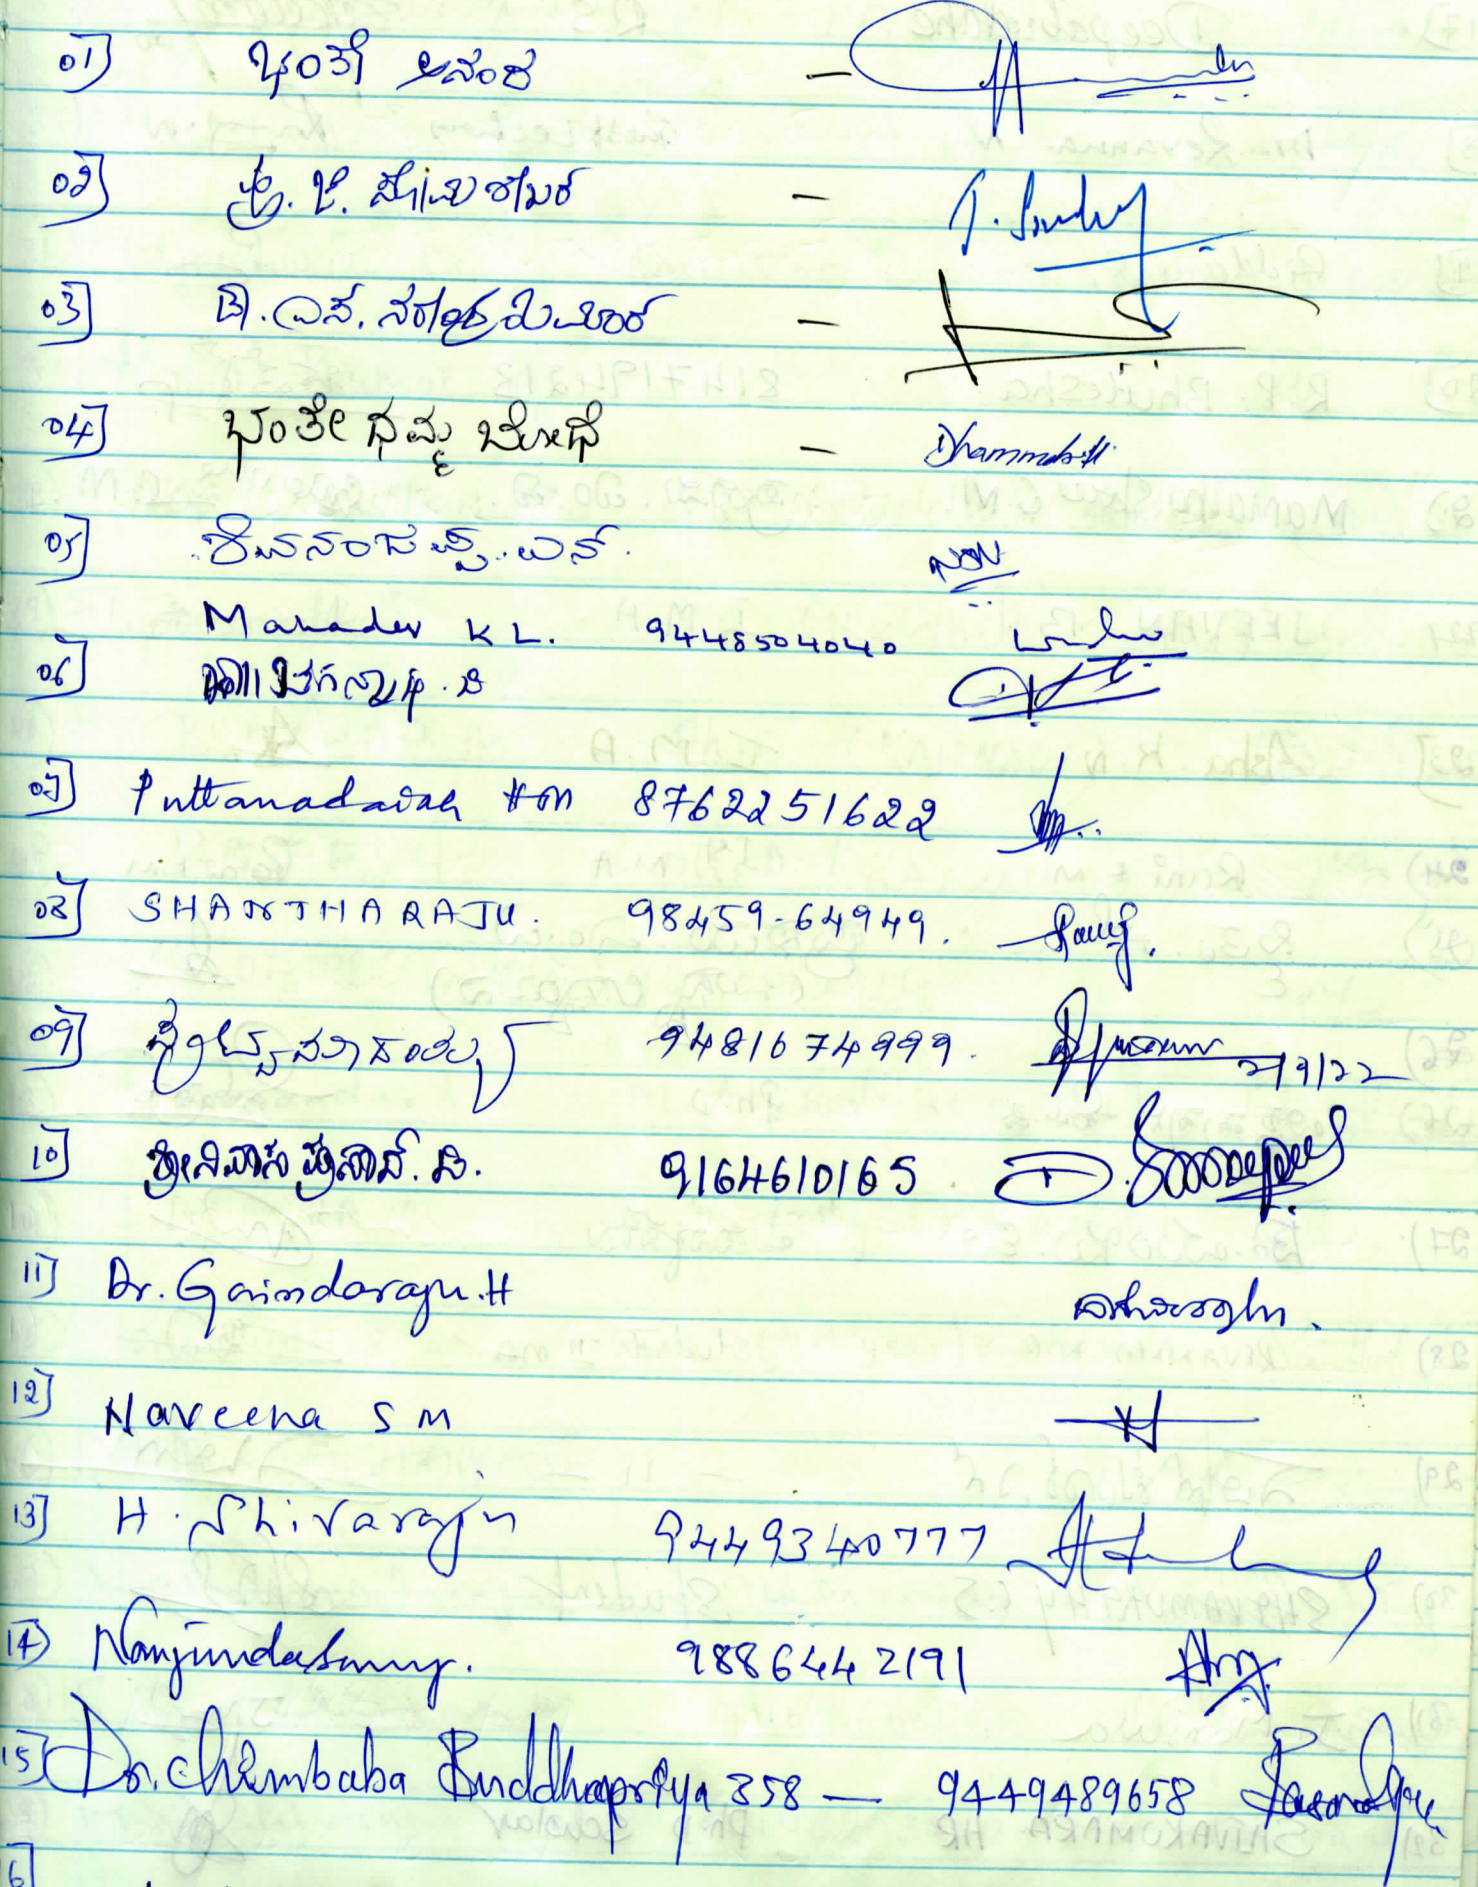 01] ಭಂತೇ ಆನಂದ -
02] ಪ್ರೊ. ಜೆ. ಸೋಮಶೇಖರ್ -
03] ಡಿ. ಎಸ್. ನರೇಂದ್ರಕುಮಾರ್ -
04] ಭಂತೇ ಧಮ್ಮ ಬೋಧಿ - Dhammabodhi
05] ಶಿವನಂಜಪ್ಪ. ಎನ್.
Mahadev K L. 9448504040
06]
07] Puttamadaiah H M 8762251622
08] SHANTHARAJU. 98459-64949.
09] 9481674999. 2/9/22
10] ಶ್ರೀನಿವಾಸ ಪ್ರಸಾದ್. ಡಿ. 9164610165
11] Dr. Govindaraju. H
12] Naveena S M
13] H. Shivaraju 9449340777
14) Nanjundaswamy. 9886442191
15] Dr. Chembaba Buddhapriya 358 — 9449489658